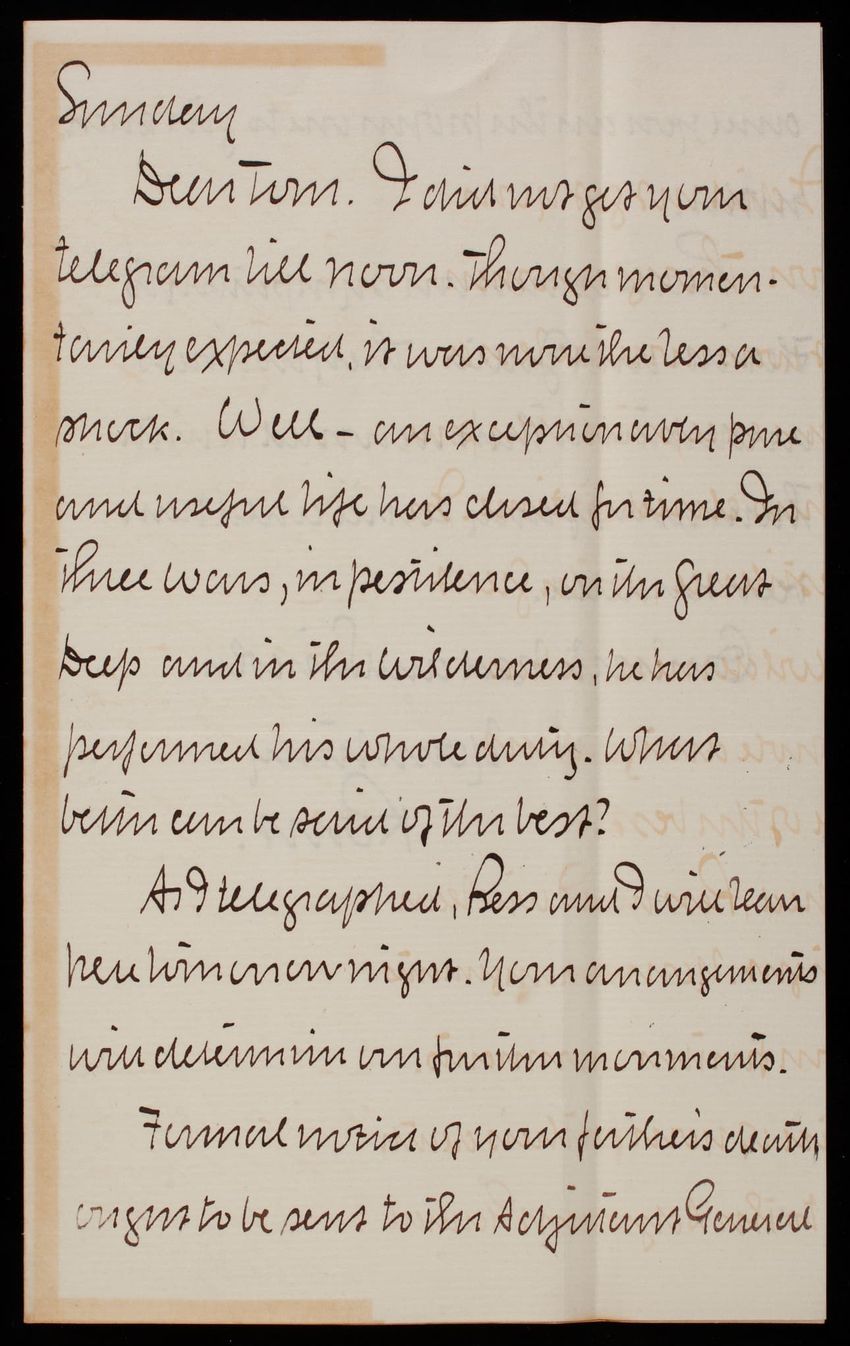 Sunday
Dear Tom. I did not get your
telegram till noon. Though momen-
tarily expected, it was none the less a
shock. Well - an exceptionally pure
and useful life has closed for time. In
three wars, in pestilence, on the Great
Deep and in the wilderness, he has
performed his whole duty. What
better can be said of the best?
As I telegraphed, Bess and I will leave
here tomorrow night. Your arrangements
will determine our further movements.
Formal notice of your father's death
ought to be sent to the Adjutant General